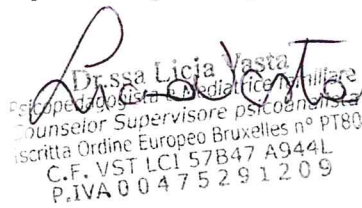 Dr.ssa Licia Vasta
Psicopedagogista e Mediatrice Familiare
Counselor Supervisore psicoanalista
iscritta Ordine Europeo Bruxelles n° PT80
C.F. VST LCI 57B47 A944L
P.IVA 0 0 4 7 5 2 9 1 2 0 9